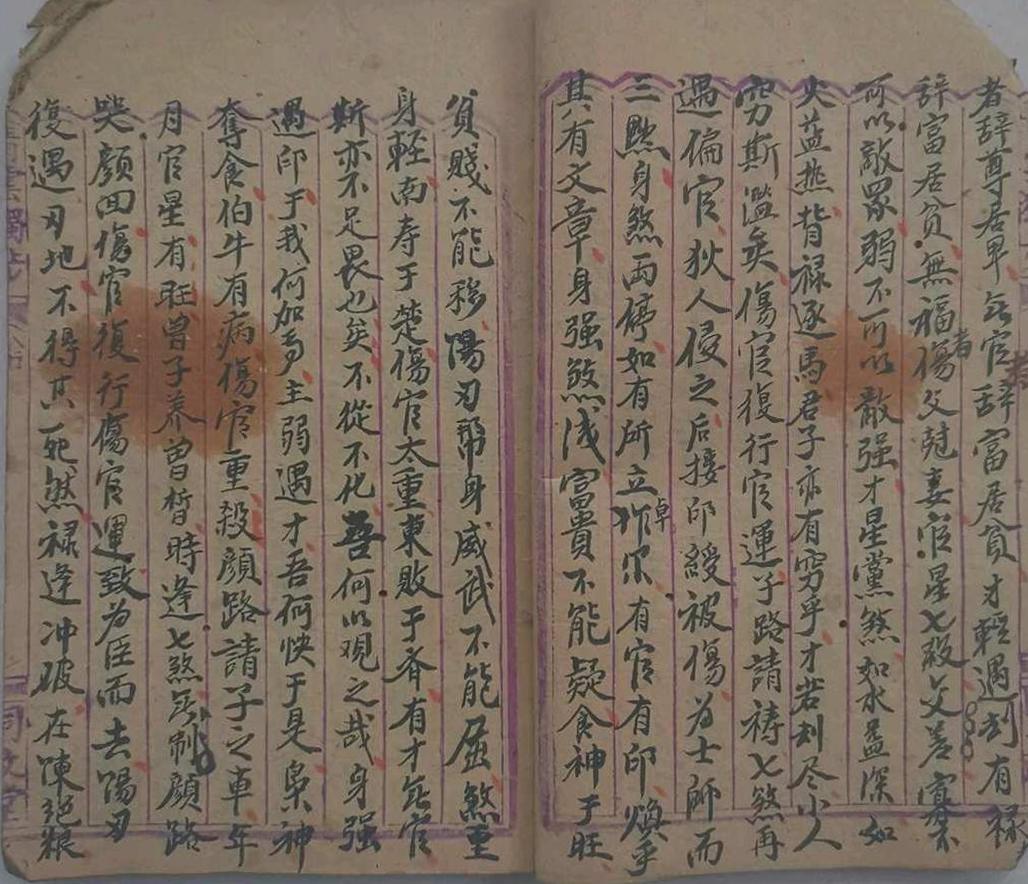 者辞尊居卑无官辞富居貧才輕遇刦有祿
辞富居貧無福者傷父尅妻官星七殺交差寡不
可以敵眾弱不可以敵强才星黨煞如水益深如
火益热背祿逐馬君子亦有穷乎才若刦尽小人
穷斯濫矣傷官復行官運子路請祷七煞再
遇偏官狄人侵之后接印綬被傷为士師而
三黜身煞两停如有所立卓尔有官有印煥乎
其有文章身强煞浅富貴不能疑食神于旺
貧賤不能移陽刃帮身威武不能屈煞重
身輕南辱于楚傷官太重東敗于齐有才无官
斯亦不足畏也矣不從不化吾何以观之哉身强
遇印于我何加焉主弱遇才吾何快于是枭神
奪食伯牛有病傷官重殺顔路請子之車年
月官星有旺曾子养曾晳時逢七煞无制顔路
哭顔回傷官復行傷官運致为臣而去陽刃
復遇刃地不得其死然祿逢冲破在陳絕粮